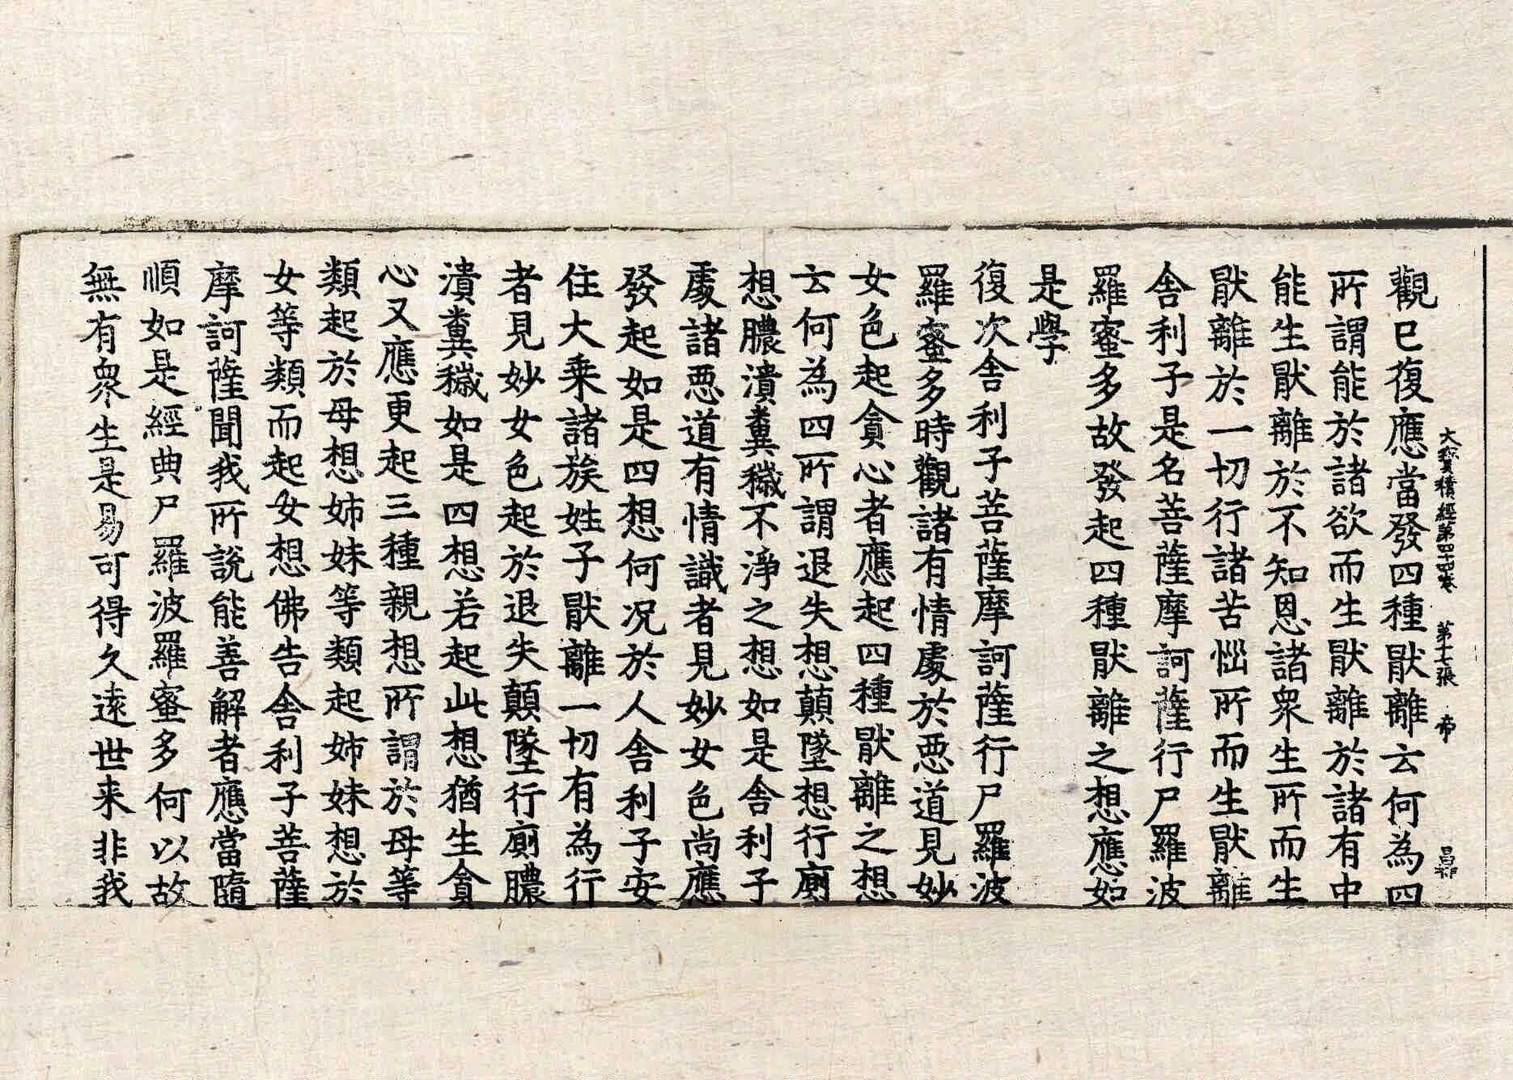 大寳積經第四十四卷　第十七張　帝
觀已復應當發四種猒離云何為四
所謂能於諸欲而生猒離於諸有中
能生猒離於不知恩諸衆生所而生
猒離於一切行諸苦惱所而生猒離
舎利子是名菩薩摩訶薩行尸羅波
羅蜜多故發起四種猒離之想應如
是學
復次舎利子菩薩摩訶薩行尸羅波
羅蜜多時觀諸有情處於惡道見妙
女色起貪心者應起四種猒離之想
云何為四所謂退失想顛墜想行廁
想膿潰糞穢不淨之想如是舎利子
處諸惡道有情識者見妙女色尚應
發起如是四想何况於人舎利子安
住大乘諸族姓子猒離一切有為行
者見妙女色起於退失顛墜行廁膿
潰糞穢如是四想若起此想猶生貪
心又應更起三種親想所謂於母等
類起於母想姊妹等類起姊妹想於
女等類而起女想佛告舎利子菩薩
摩訶薩聞我所説能善解者應當隨
順如是經典尸羅波羅蜜多何以故
無有衆生是易可得久遠世来非我